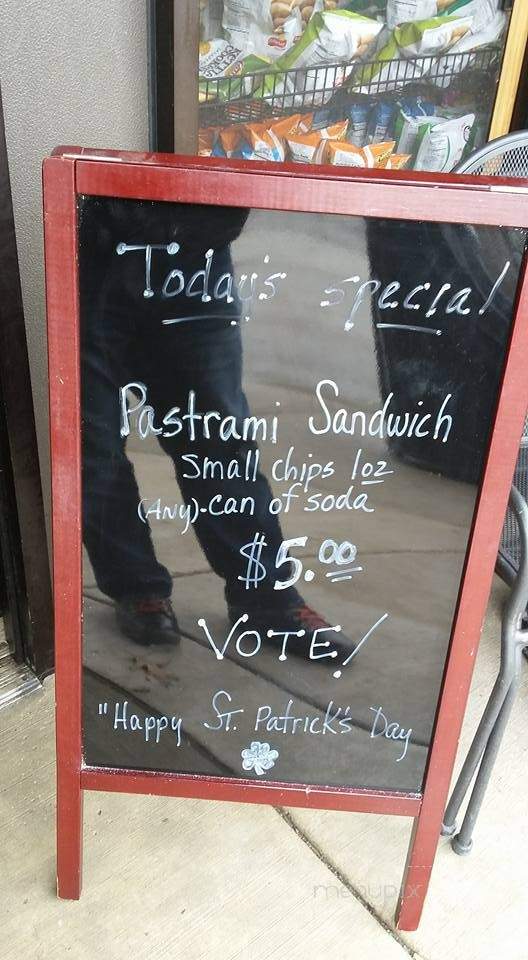 Today's special
Pastrami Sandwich
Small chips 1oz
(ANy)-can of soda
$5.00
VOTE!
"Happy ST. Patrick's Day
menupix